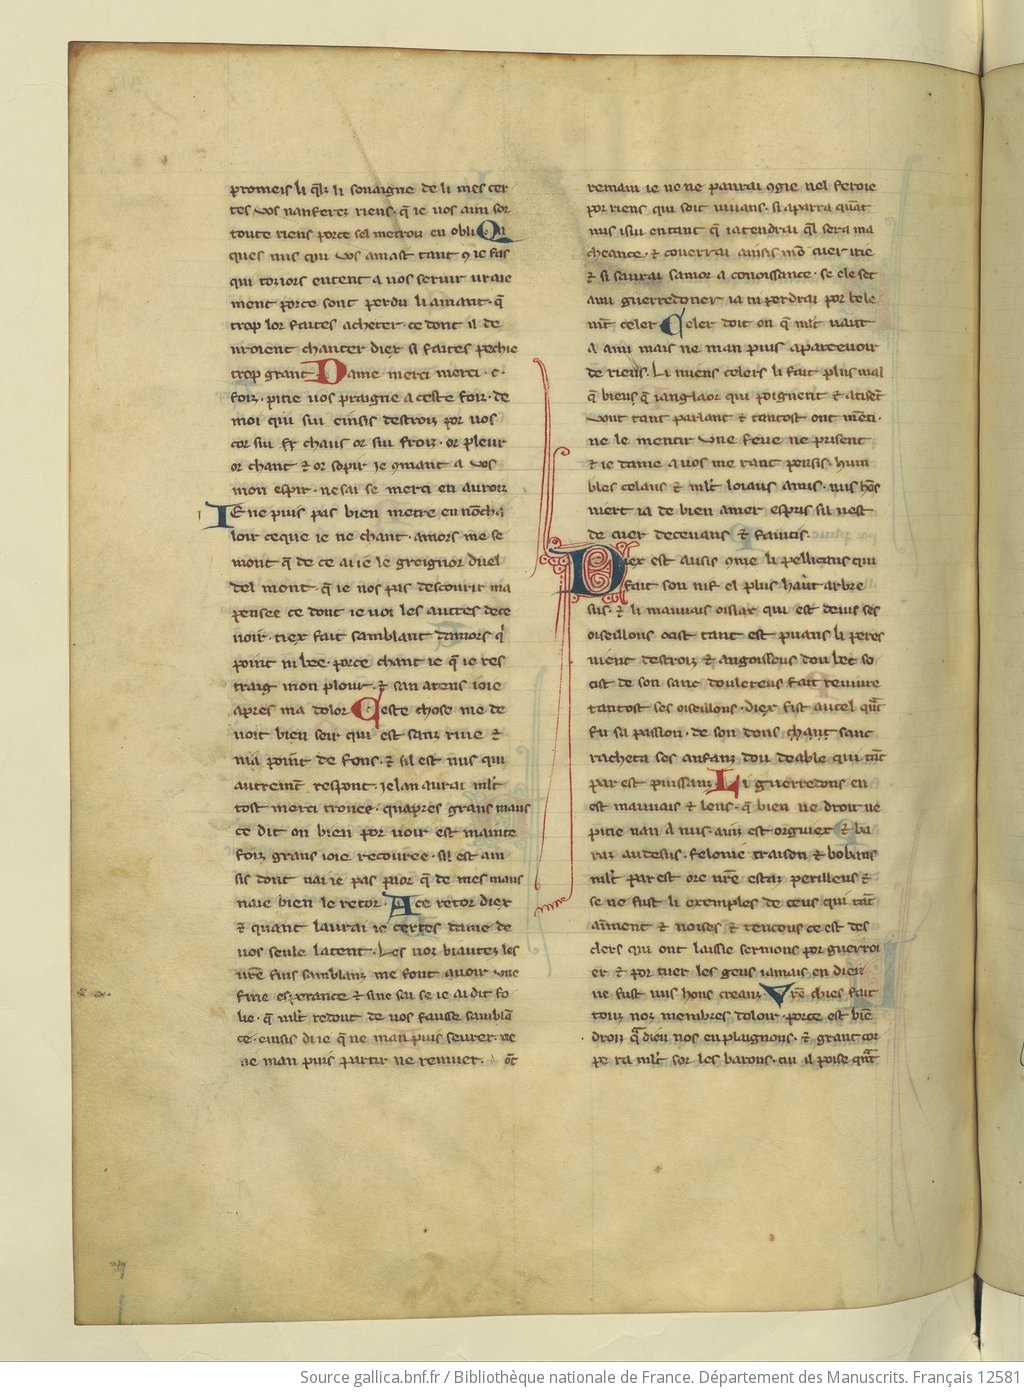 promeis li qͥl li souaigne de li mes cer
tes vos nanferez riens. q̄ ie vos aim sor
toute riens porce sel metroiz en obli Qi
ques nus qui vos amast tant ꝯ ie fas
qui toziors entent a vos seruir uraie
ment porce sont perdu li amant. q̄
trop lor faites acheter. ce dont il de
uroient chanter diex si faites pechie
trop grant Dame merci merci .c.
foiz. pitie uos praigne a ceste foiz. de
moi qui sui einsis destroiz por uos
cor sui chaus or sui froiz. or pleur
or chant ⁊ or sopir ie ꝯmant a vos
mon espir. ne sai se merci en auroiz
Ie ne puis pas bien metre en nōcha
loir ceque ie ne chant. amors me se
mont q̄ de ce ai ie le greignor duel
del mont. q̄ ie nos pas descourir ma
pensee ce dont ie uoi les autres dece
uoir. tiex fait samblant damors qͥ
point ni bee. porce chant ie q̄ ie res
traig mon plour. ⁊ san atens ioie
apres ma dolor Ceste chose me de
uoit bien seir qui est sanz riue ⁊
nia point de fons. ⁊ sil est nus qui
autremēt respont. ielan aurai ml't
tost merci trouee. quapres grans maus
ce dit on bien por uoir est mainte
foiz grans ioie recouree. sil est ain
sis dont nai ie pas pior q̄ de mes maus
naie bien le retor. A ce retor diex
⁊ quant laurai ie certes dame de
uos seule latent. Les uoz biautez les
ur̄e fins samblanz me font auoir vne
fine esperance ⁊ sine sai se ie ai dit fo
lie. q̄ ml't redout de uos fausse samblā
ce. einsis di ie q̄ ne man puis seurer. ne
ne man puis partir ne remuer.
remain ie ne ne paurai ꝯgie nel feroie
por riens qui soit uiuans. si aparra quāt
nus isui entant q̄ iatendrai qͥl sera ma
cheance. ⁊ couerrai ainsis mō cuer irie
⁊ si saurai samor a conoissance. se ele set
ami guerredoner ia ni perdrai por bele
mēt celer Celer doit on q̄ ml't uaut
a ami mais ne man puis aparcevoir
de riens. Li miens celers li fait plus mal
q̄ biens q̄ ianglaor qui poignent ⁊ atisēt
vont tant parlant ⁊ tantost ont mēti.
ne le mentir vne feue ne prisent
⁊ ie dame a uos me rant pensis. hum
bles celans ⁊ ml't loiaus amis. nus hōs
niert ia de bien amer espris sil nest
de cuer deceuans ⁊ faintis.
Diex est ausis ꝯme li pellicans qui
fait son nif el plus haut arbre
sus. ⁊ li mauuais oisiax qui est deius ses
oiseillons ocist tant est puans li peres
uient destroiz ⁊ angoisseus dou bec so
cist de son sanc doulereus fait reuiure
tantost ses oiseillons. diex fist autel qͣt
fu sa passion. de son douz chant sanc
racheta ses anfanz dou deable qui tāt
par est puissanz Li guerredons en
est mauuais ⁊ lens. q̄ bien ne droit ne
pitie nan a nus. ainz est orguiex ⁊ ba
raz audesus. felonie traison ⁊ bobans
ml't par est ore nr̄e estaz perilleus ⁊
se ne fust li exemples de ceus qui tāt
aiment ⁊ noises ⁊ tencons ce est des
clers qui ont laissie sermons por guerroi
er ⁊ por tuer les gens iamais en dieu
ne fust nus hons creanz Vr̄e chies fait
touz noz membres doloir. porce est biē
droiz qͣ dieu nos en plaignons. ⁊ grant cor
pe ra ml't sor les barons. cui il poise qͣt